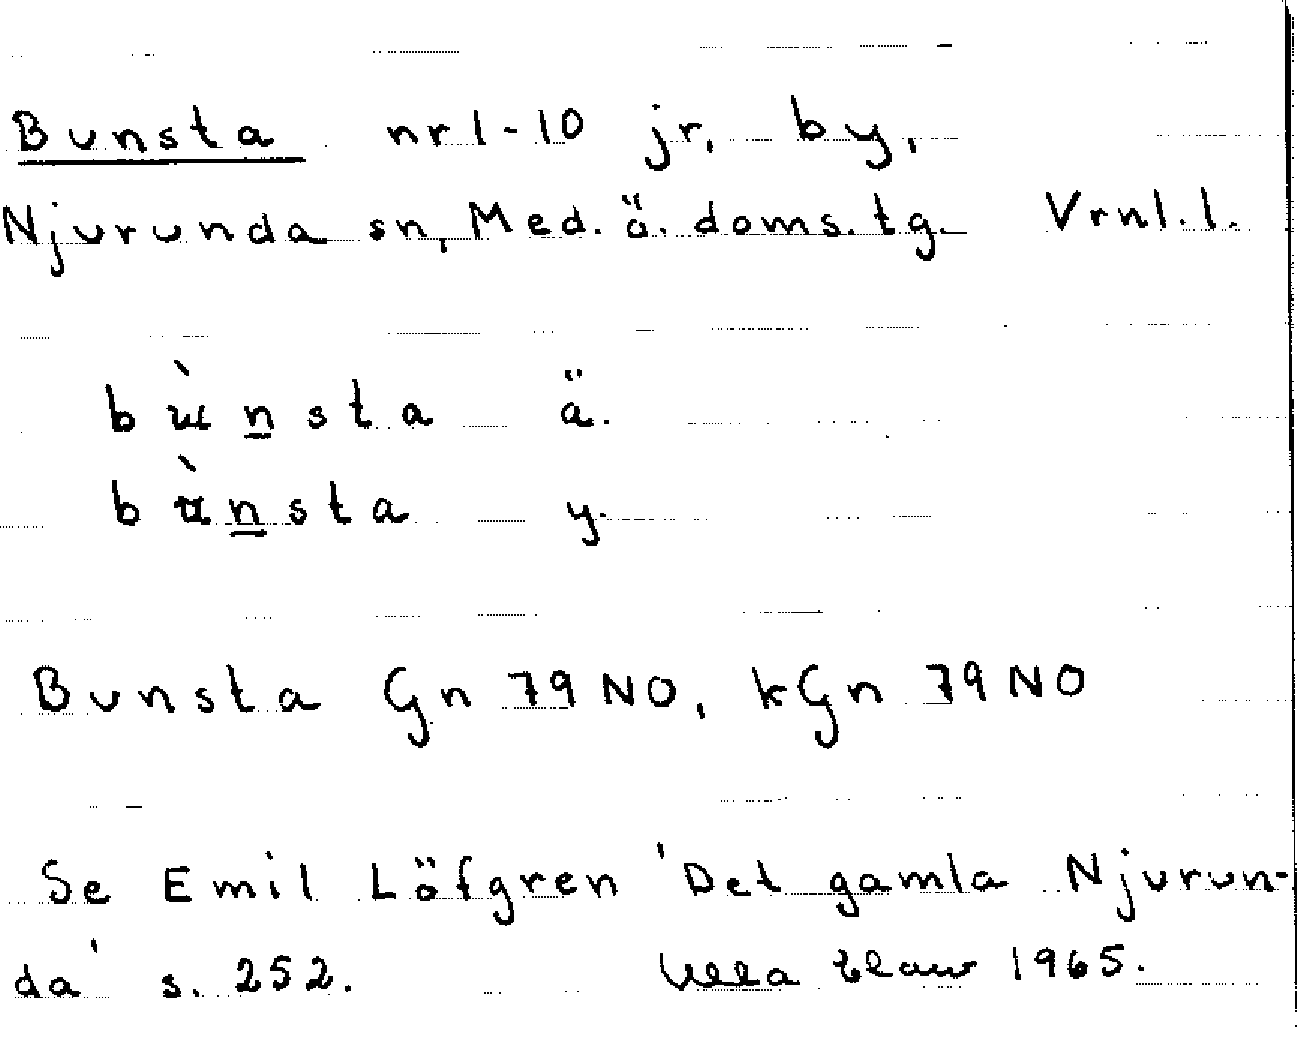 Bunsta nr 1-10 jr, by,
Njurunda sn, Med. ä. doms. tg. Vrnl. l.
bùn̲sta ä.
bùn̲sta y.
Bunsta Gn 79 NO, kGn 79 NO
Se Emil Löfgren 'Det gamla Njurun-
da' s. 252. 1965.